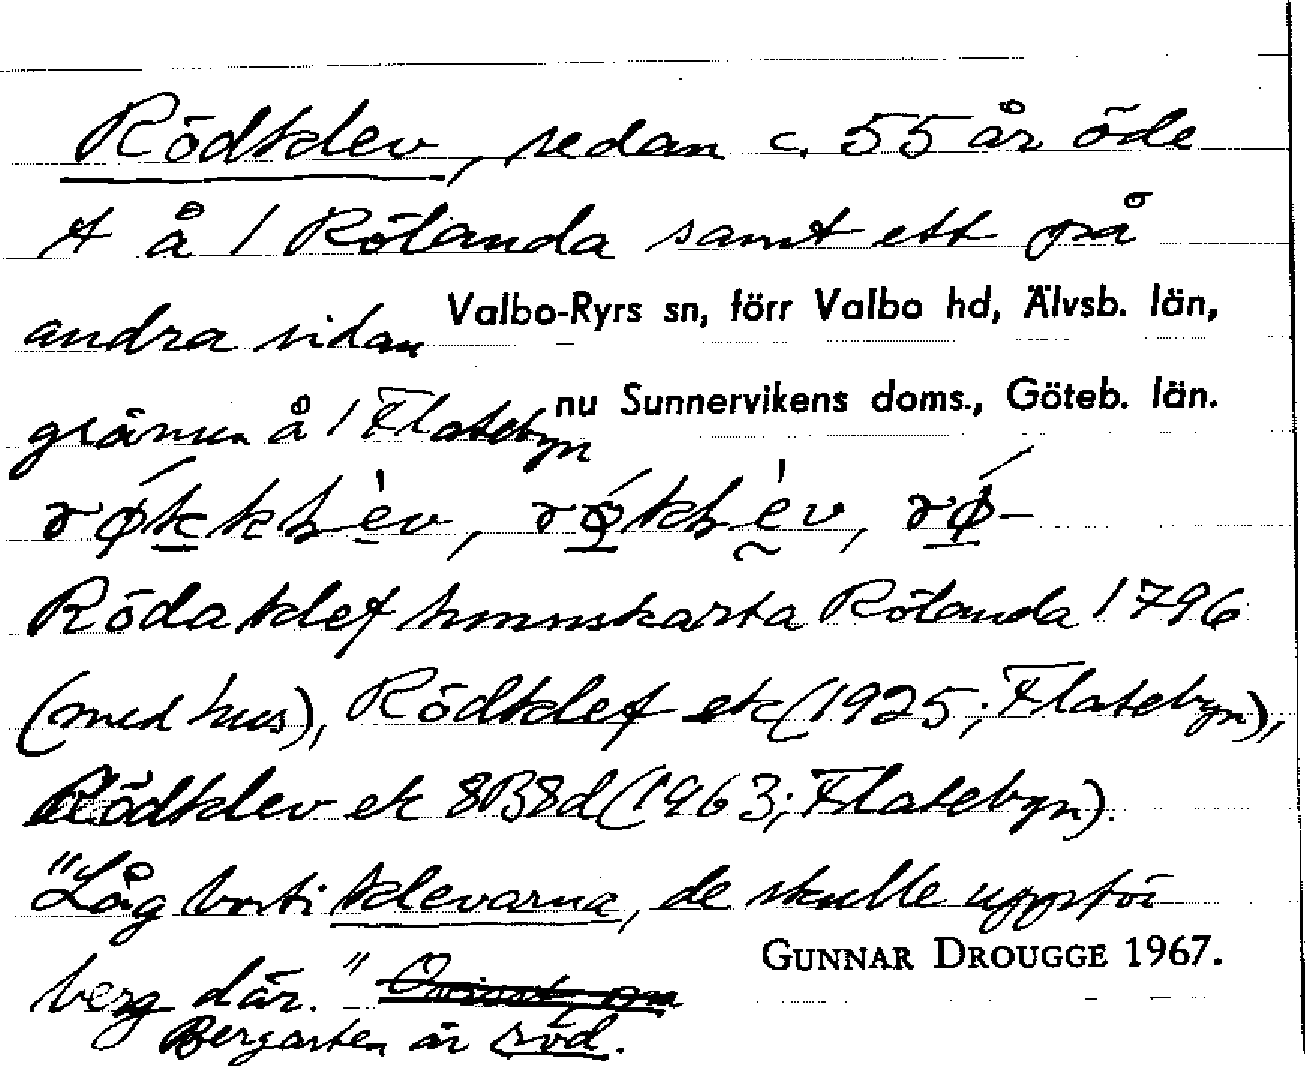 Rödklev, sedan c. 55 år öde
t å 1 Rölanda samt ett på
andra sidan Valbo-Ryrs sn, förr Valbo hd, Älvsb. län,
gränsen å 1 Flatebyn nu Sunnervikens doms., Göteb. län.
Röda klef hemmskarta Rölanda 1796
(med hus), Rödklef ek (1925; Flatebyn),
Rödklev ek 8B8d (1963; Flatebyn).
"Låg borti klevarna, de skulle uppför
berg där."
GUNNAR DROUGGE 1967.
Bergarten är röd.